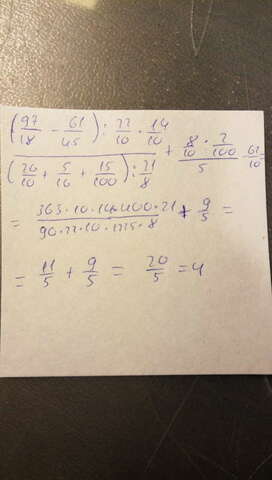 (97/18 - 61/45) : 22/10 · 14/10 / (20/10 + 5/16 + 15/100) : 21/8 + 8/10 · 2/100 / 5 · 61/10
= 365·10·14·400·21 / 90·22·10·1225·8 + 9/5 =
= 11/5 + 9/5 = 20/5 = 4